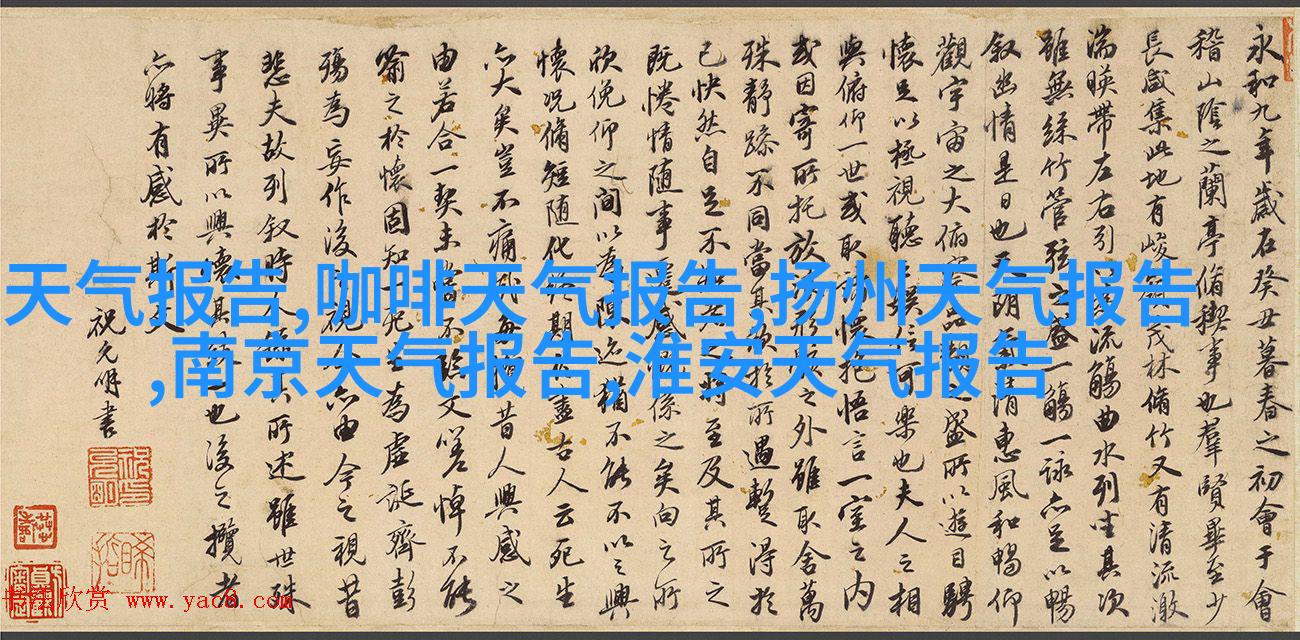 永和九年歲在癸丑暮春之初會于會
稽山陰之蘭亭脩稧事也羣賢畢至少
長咸集此地有峻領茂林脩竹又有清流激
湍暎帶左右引流觴曲水列坐其次
雖無絲竹管弦之盛一觴一詠亦足以暢
叙幽情是日也天朗氣清惠風和暢仰
觀宇宙之大俯察品類之盛所以遊目騁
懷足以極視聽娛信可樂也夫人之相
與俯仰一世或取諸懷抱悟言一室之內
或因寄所托放形骸之外雖取舍萬
殊靜躁不同當其欣於所遇暫得於
已快然自足不知老之將至及其所之
既惓情随事遷感慨係之矣向之所
欣俛仰之間以為陳迹猶不能不以之興
懷況脩短随化終期於盡古人云死生
亦大矣豈不痛哉每攬昔人興感之
由若合一契未嘗不臨文嗟悼不能
喻之於懷固知一死生為虛誕齊彭
殤為妄作後之視今亦由今之視昔
悲夫故列叙時人所述雖世殊
事異所以興懷其致一也後之攬者
亦將有感於斯文
祝允明書
天气报告,咖啡天气报告,扬州天气报告
,南京天气报告,淮安天气报告
欣赏 www.yac8.com